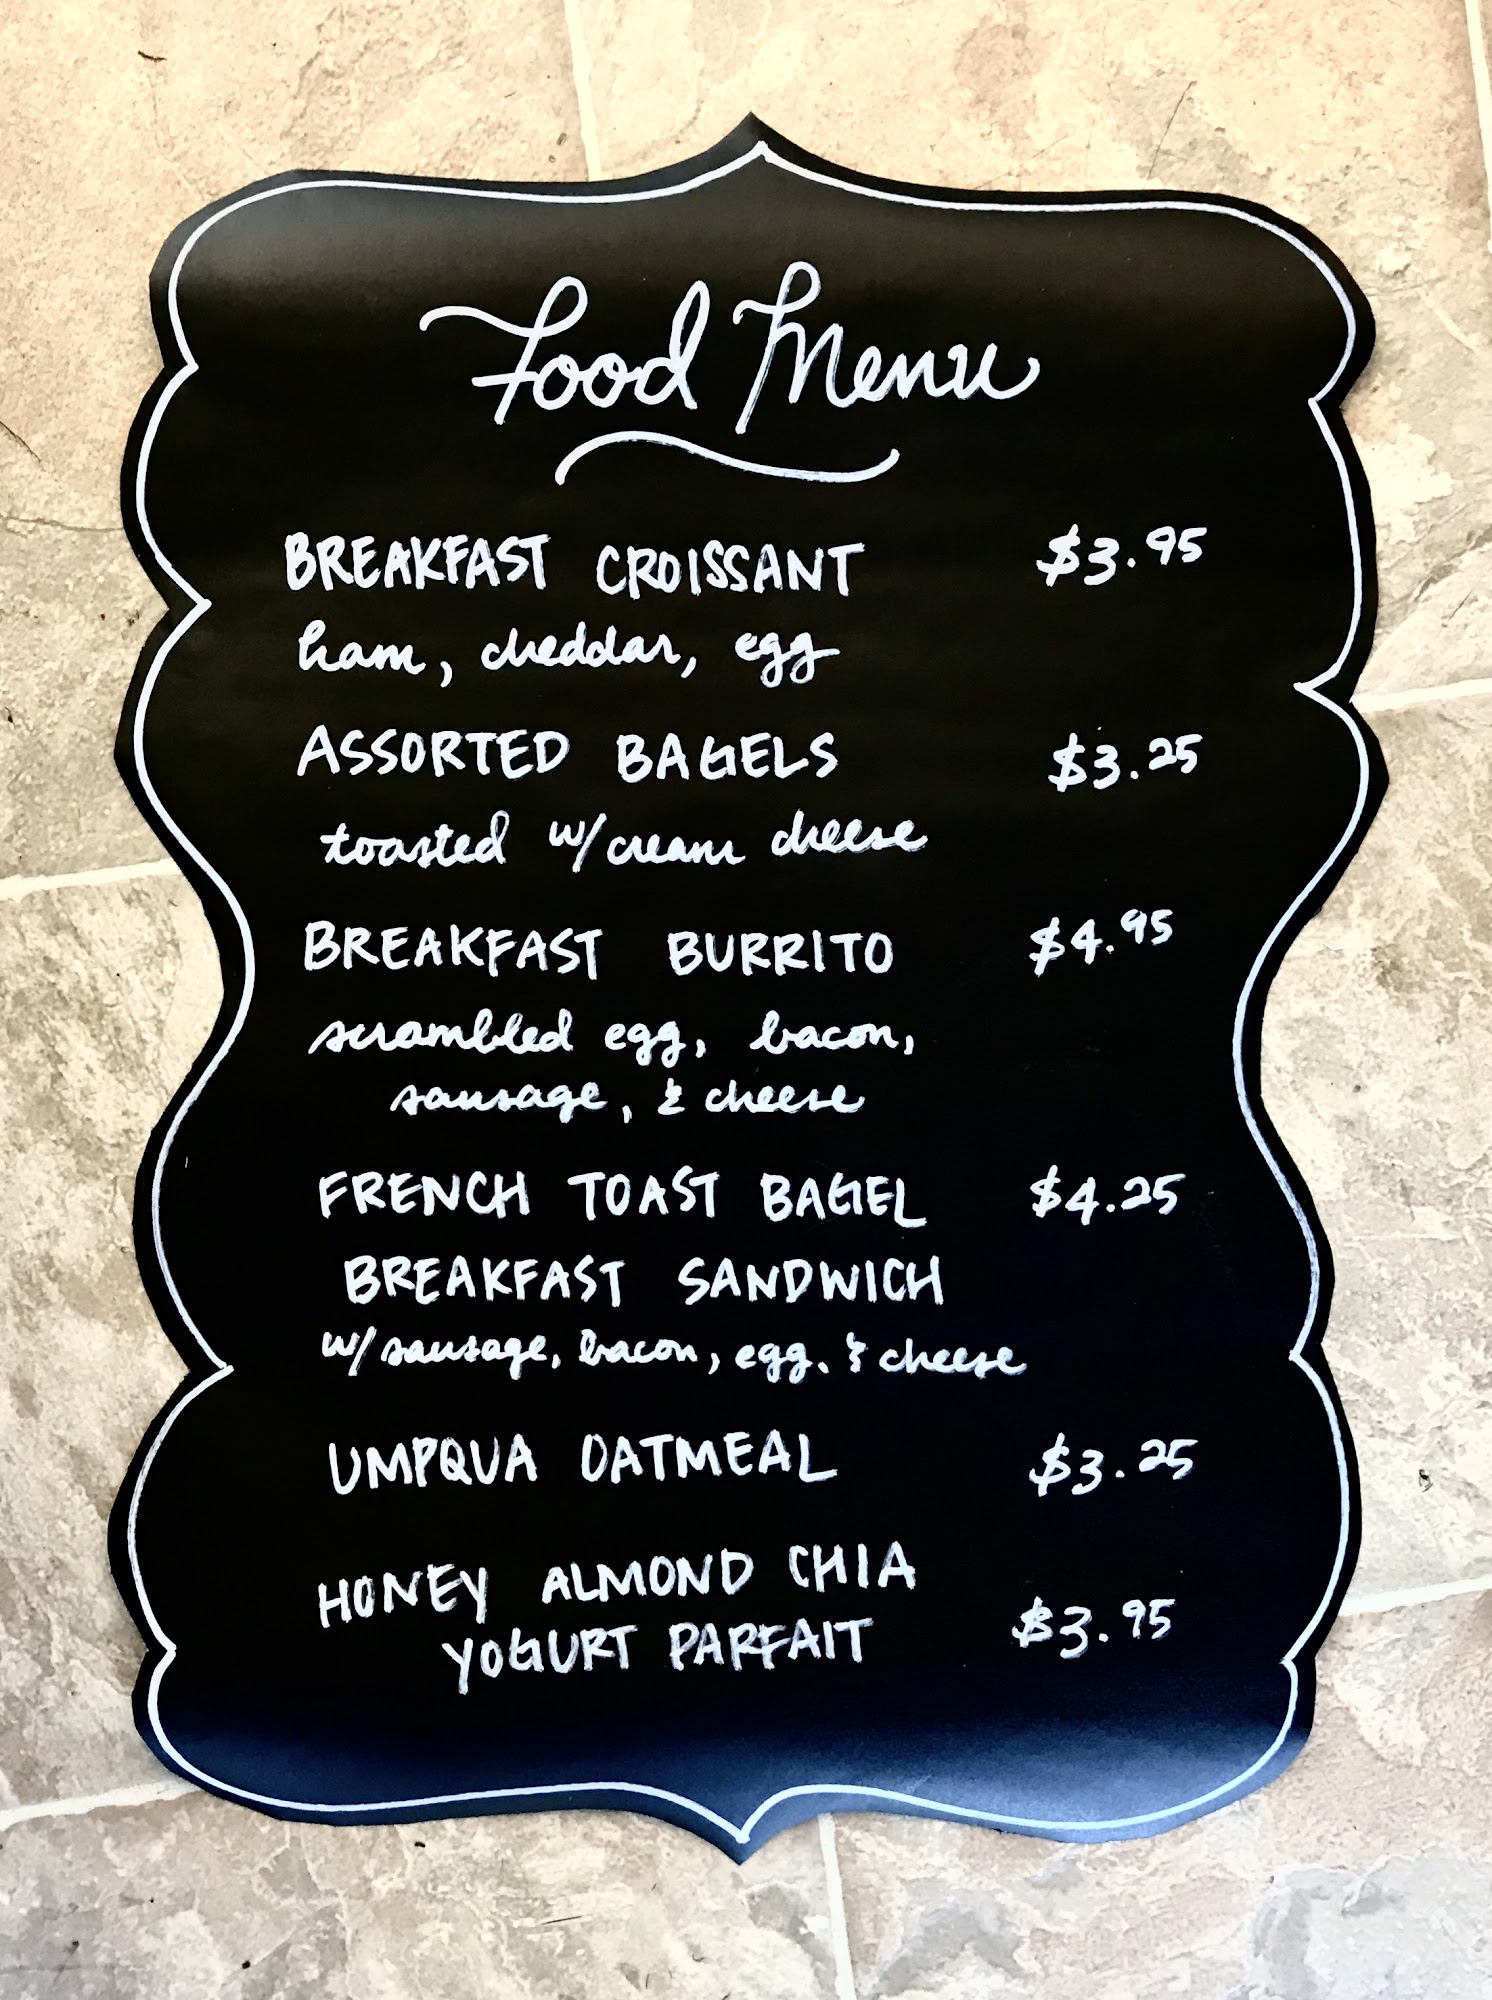 Food Menu
BREAKFAST CROISSANT $3.95
ham, cheddar, egg
ASSORTED BAGELS $3.25
toasted w/cream cheese
BREAKFAST BURRITO $4.95
scrambled egg, bacon,
sausage, & cheese
FRENCH TOAST BAGEL $4.25
BREAKFAST SANDWICH
w/sausage, bacon, egg. & cheese
UMPQUA OATMEAL $3.25
HONEY ALMOND CHIA
YOGURT PARFAIT $3.95